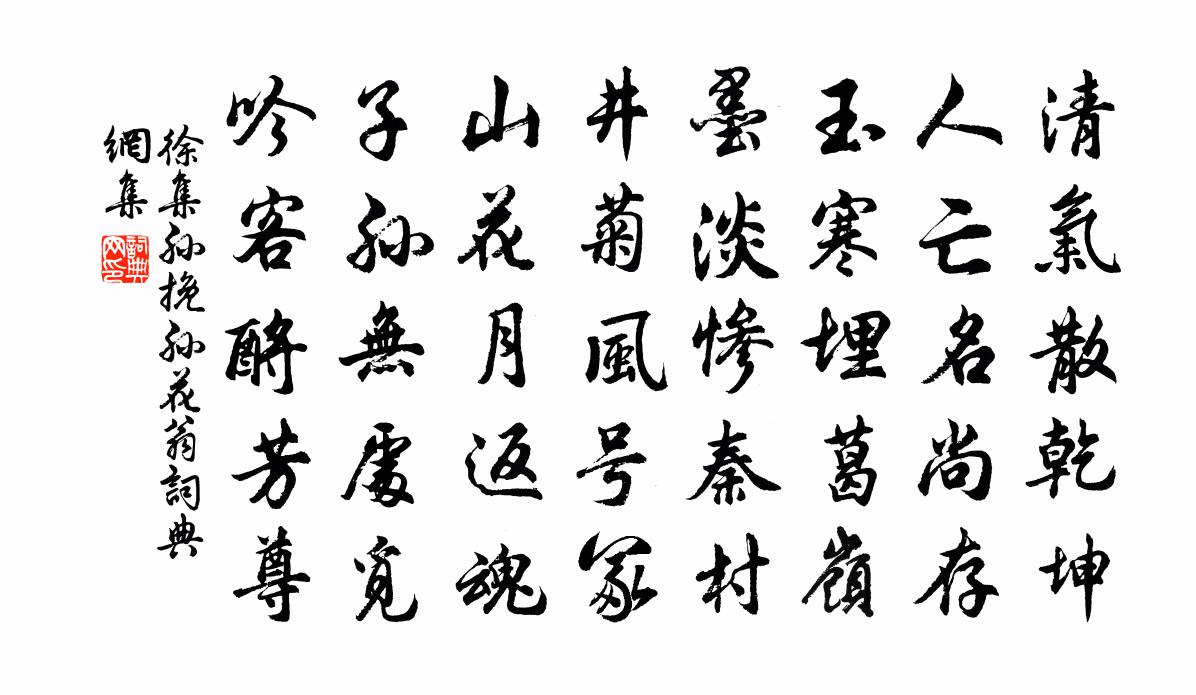 清氣散乾坤
人亡名尚存
玉寒埋葛嶺
墨淡慘秦村
井菊風号冢
山花月返魂
子孫無處覓
吟客酹芳尊
徐集孫挽孫花翁詞典
網集
詞典
网印